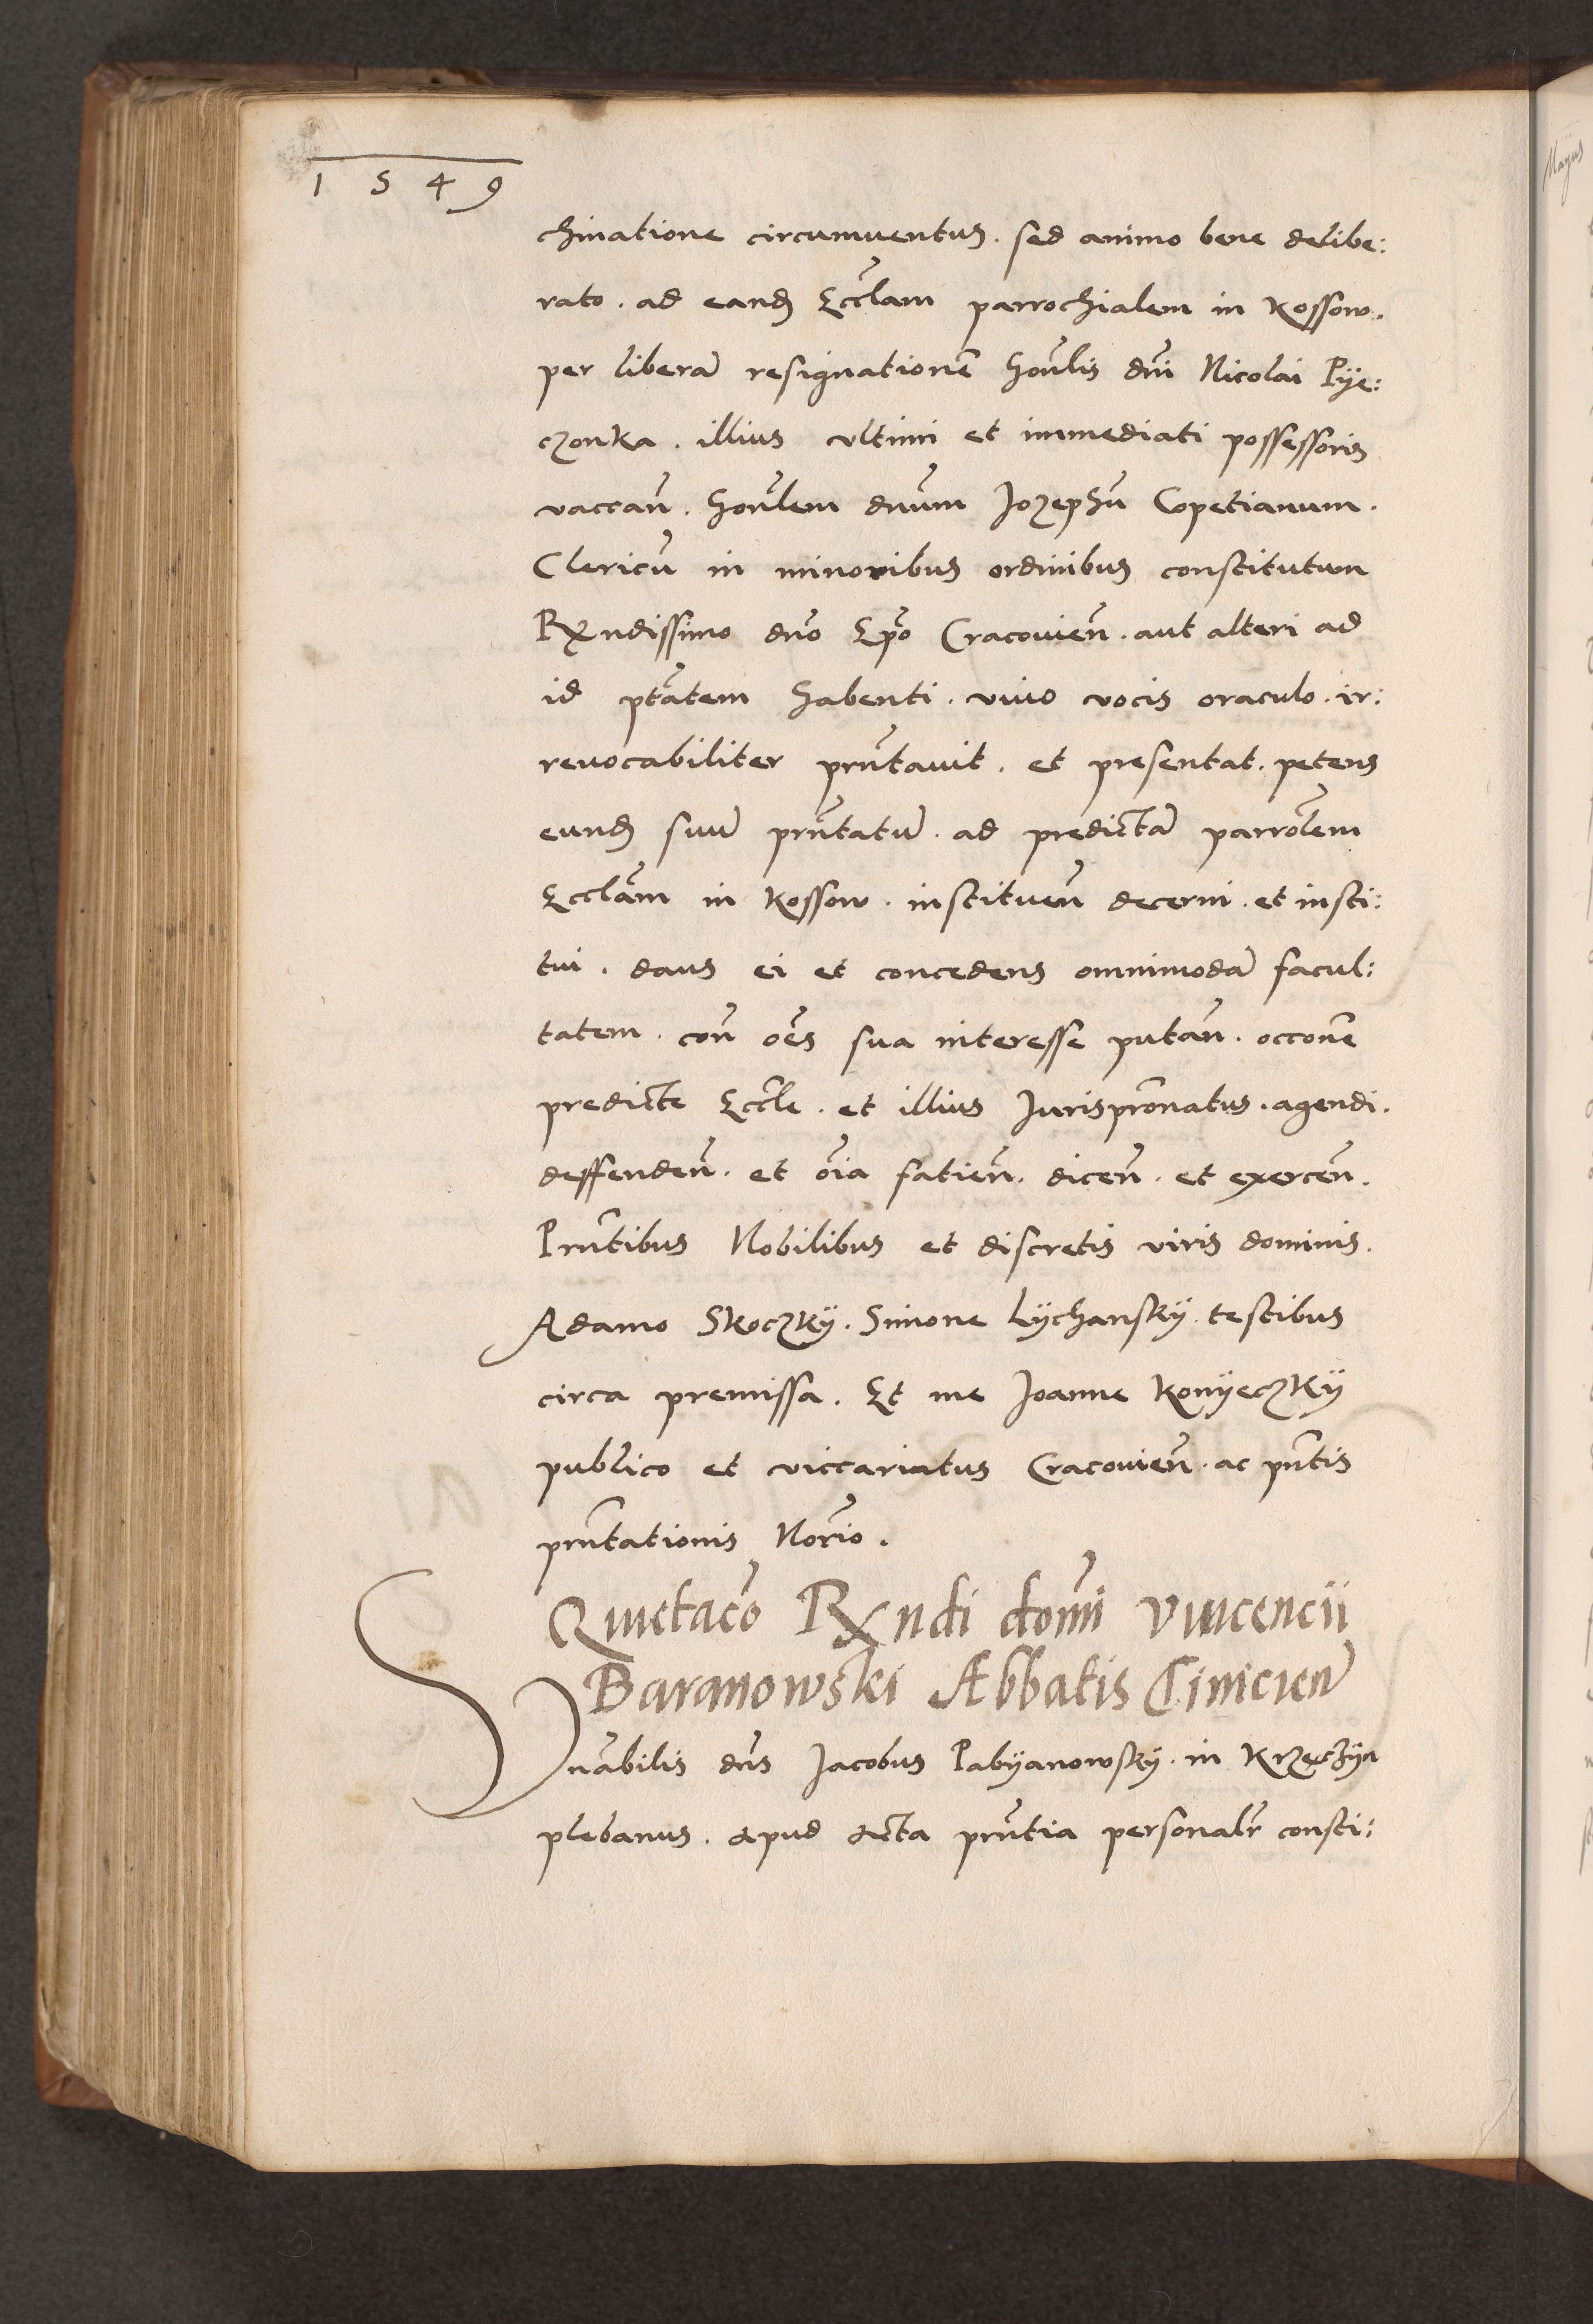 1549
chinatione circumuentus. sed animo bene delibe:
rato. ad eand Eccłam parrochialem in Kossow.
per liberā resignationē honłis dni Nicolai Pÿe:
czonka. illius vltimi et immediati possessoris
vaccan̄. honłem dnum Jozephū Copetianum.
Clericū in minoribus ordinibus constitutum
Rxndissimo dno Epo Cracouien̄. aut alteri ad
id ptātem habenti. viuo vocis oraculo. ir:
reuocabiliter prn̄tauit. et presentat. petens
eund suū prn̄tatū. ad predictā parrołem
Eccłam in Kossow. instituen̄ decerni. et insti:
tui. dans ei et concedens omnimodā facul:
tatem. con̄ oēs sua interesse putan̄. occonē
predicte Eccłe. et illius Jurisprōnatus. agendi.
deffenden̄. et oīa fatien̄. dicen̄. et exercen̄.
Prn̄tibus Nobilibus et discretis viris dominis.
Adamo Skoczkÿ. Simone Lÿchanskÿ. testibus
circa premissa. Et me Joanne Konÿeczkÿ
publico et viccariatus Cracouien̄. ac pn̄tis
prn̄tationis Norīo.
Quictacō Rxndi domī Vincencii
Baranowski Abbatis Ciniciēn
Vnābilis dn̄s Jacobus Pabÿanowskÿ. in Krzęczÿn
plebanus. apud acta prn̄tia personałr consti:
Mayus